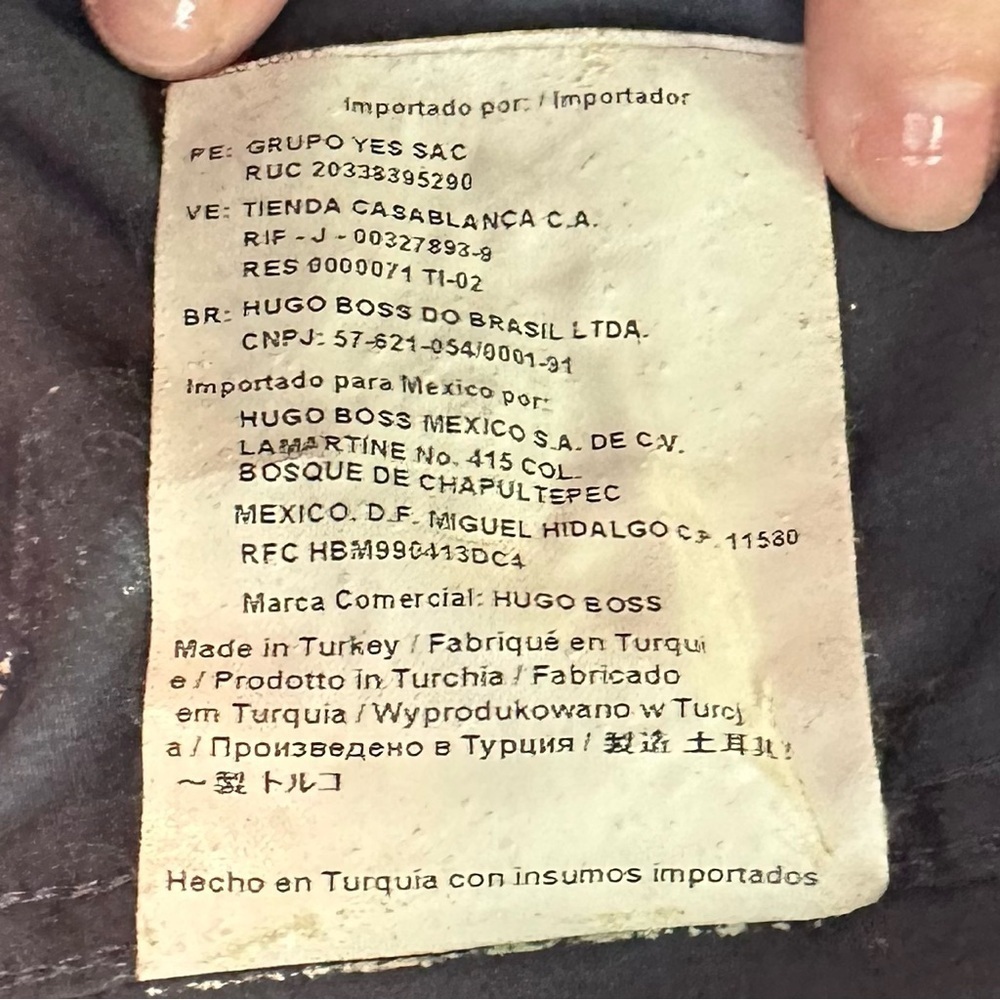 Importado por: / Importador
PE: GRUPO YES SAC
RUC 20338395290
VE: TIENDA CASABLANCA C.A.
RIF - J - 00327893-9
RES 0000071 TI-02
BR: HUGO BOSS DO BRASIL LTDA.
CNPJ: 57-621-054/0001-91
Importado para Mexico por:
HUGO BOSS MEXICO S.A. DE C.V.
LAMARTINE No. 415 COL.
BOSQUE DE CHAPULTEPEC
MEXICO. D.F. MIGUEL HIDALGO C.P. 11580
RFC HBM990413DC4
Marca Comercial: HUGO BOSS
Made in Turkey / Fabriqué en Turqui
e / Prodotto in Turchia / Fabricado
em Turquia / Wyprodukowano w Turcj
a / Произведено в Турция / 製造 土耳
製 トルコ
Hecho en Turquía con insumos importados